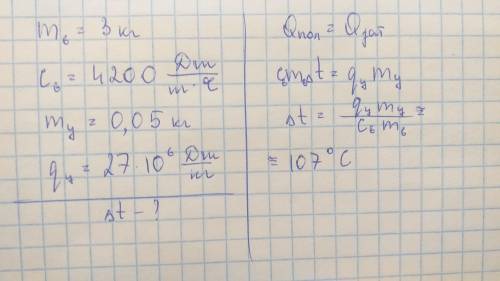 mв = 3 кг
cв = 4200 Дж/m·°C
my = 0,05 кг
qy = 27·10⁶ Дж/кг
Δt - ?
Qпол = Qзат
cвmвΔt = qy my
Δt = qy my / cв mв ≈
≈ 107°C